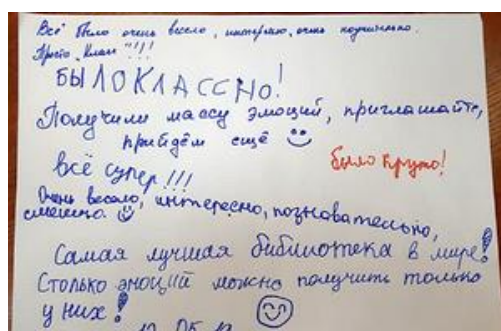 Всё было очень весело, интересно, очень позитивно.
Просто "Класс"!!!
БЫЛО КЛАССНО!
Получили массу эмоций, приглашайте,
прийдём ещё
было круто!
Всё супер!!!
Очень весело, интересно, познавательно,
смешно.
Самая лучшая библиотека в мире!
Столько эмоций можно получить только
у них!